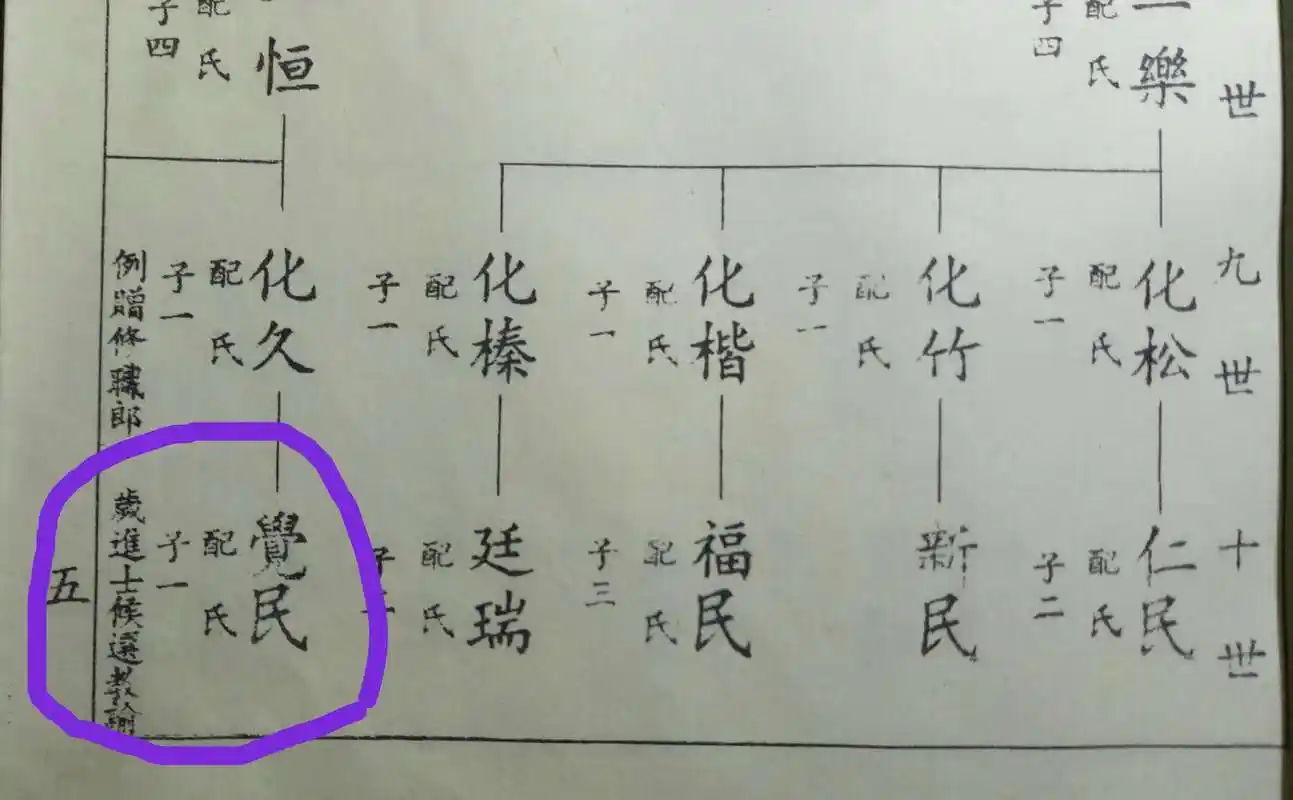 世
一樂
配氏
子四
恒
配氏
子四
九世
化松
配氏
子一
化竹
配氏
子一
化楷
配氏
子一
化榛
配氏
子一
化久
配氏
子一
例贈修職郎
十世
仁民
配氏
子二
新民
福民
配氏
子三
廷瑞
配氏
子
覺民
配氏
子一
歲進士候選教諭
五